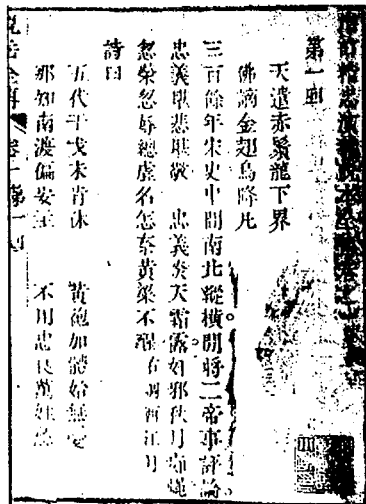 增訂精忠演義說本全傳卷之一
第一回
天遣赤鬚龍下界
佛謫金翅鳥降凡
三百餘年宋史中間南北縱橫閒將二帝事評論
忠義堪悲堪敬 忠義炎天霜露奸邪秋月痴蠅
忽榮忽辱總虛名怎奈黃粱不醒 右調西江月
詩曰
五代干戈未肯休 黃袍加體始無憂
那知南渡偏安主 不用忠良萬姓愁
說岳全傳 卷一第一回